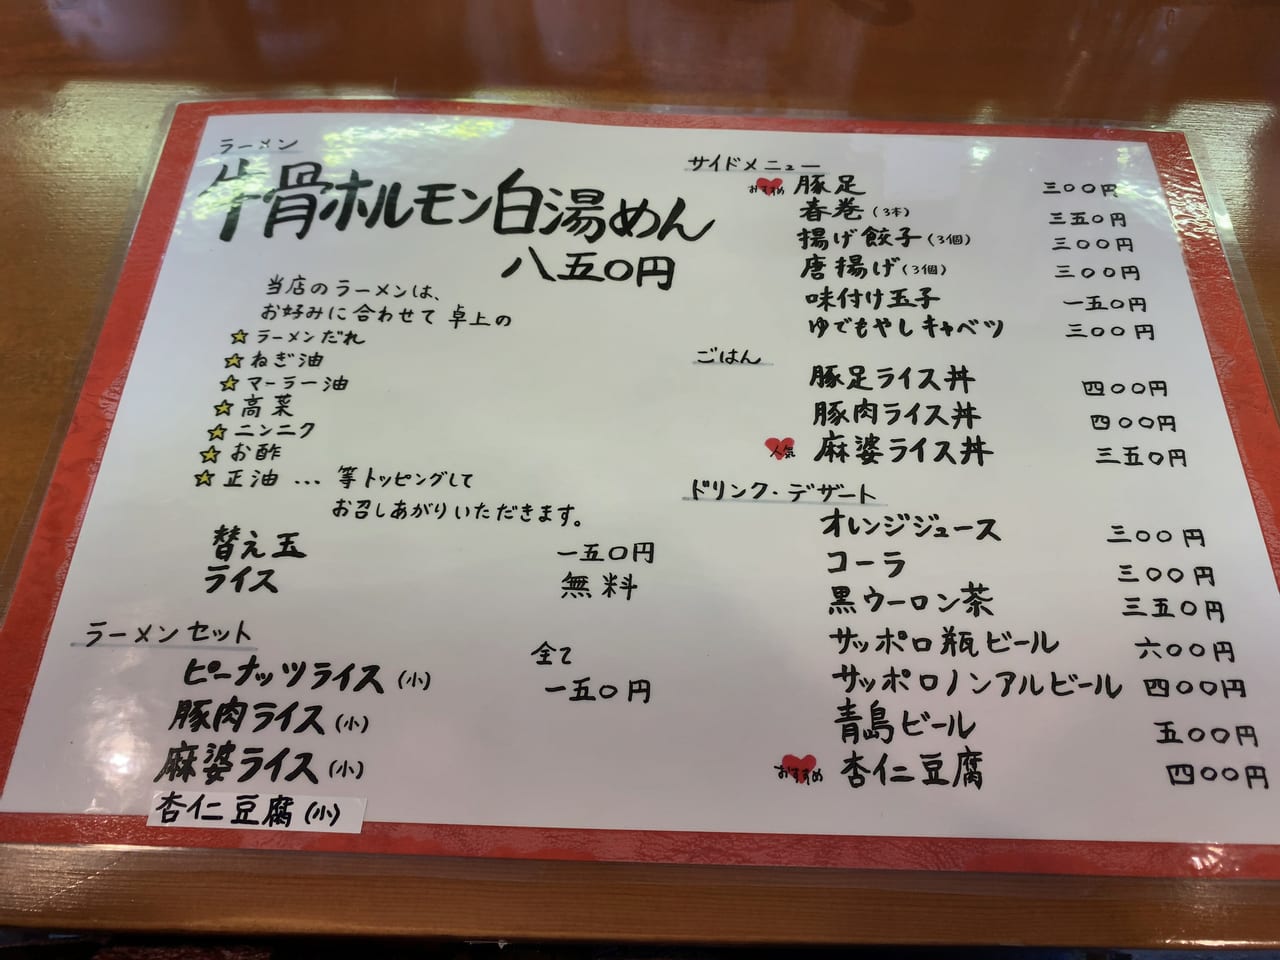 ラーメン
牛骨ホルモン白湯めん
八五〇円
当店のラーメンは、
お好みに合わせて卓上の
☆ラーメンだれ
☆ねぎ油
☆マーラー油
☆高菜
☆ニンニク
☆お酢
☆正油…等トッピングして
お召しあがりいただきます。
替え玉 一五〇円
ライス 無料
ラーメンセット
全て
一五〇円
ピーナッツライス(小)
豚肉ライス(小)
麻婆ライス(小)
杏仁豆腐(小)
サイドメニュー
おすすめ 豚足 三〇〇円
春巻(3本) 三五〇円
揚げ餃子(3個) 三〇〇円
唐揚げ(3個) 三〇〇円
味付け玉子 一五〇円
ゆでもやしキャベツ 三〇〇円
ごはん
豚足ライス丼 四〇〇円
豚肉ライス丼 四〇〇円
人気 麻婆ライス丼 三五〇円
ドリンク・デザート
オレンジジュース 三〇〇円
コーラ 三〇〇円
黒ウーロン茶 三五〇円
サッポロ瓶ビール 六〇〇円
サッポロノンアルビール 四〇〇円
青島ビール 五〇〇円
おすすめ 杏仁豆腐 四〇〇円